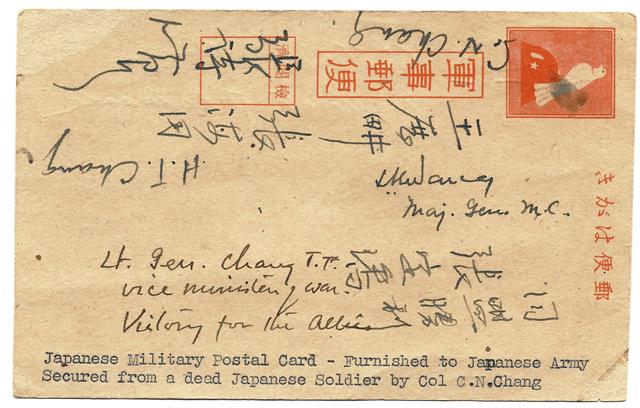 C. N. Chang
軍事郵便
検閲済
張
H. T. Chang
Maj. Gen. M.C.
郵便はがき
Lt. Gen. Chang T.F.
vice minister of war.
Victory for the Allies
同盟勝利
Japanese Military Postal Card - Furnished to Japanese Army
Secured from a dead Japanese Soldier by Col C.N.Chang